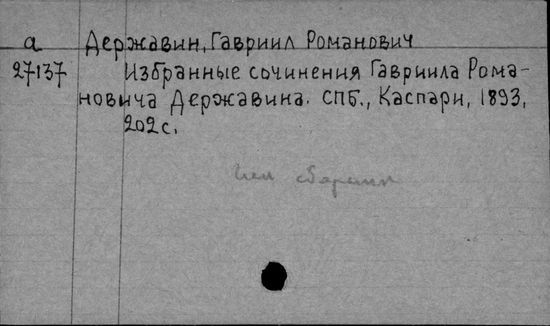 а Державин, Гавриил Романович
27137 Избранные сочинения Гавриила Рома-
новича Державина. СПБ., Каспари, 1893,
202с.